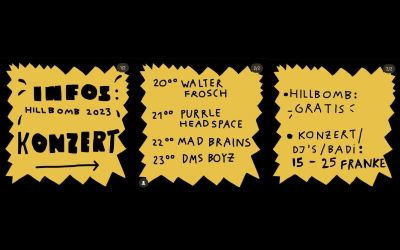 INFOS:
HILLBOMB 2023
KONZERT
20⁰⁰ WALTER
FROSCH
21⁰⁰ PURRLE
HEADSPACE
22⁰⁰ MAD BRAINS
23⁰⁰ DMS BOYZ
• HILLBOMB:
GRATIS
• KONZERT/
DJ'S/BADI:
15 - 25 FRANKE